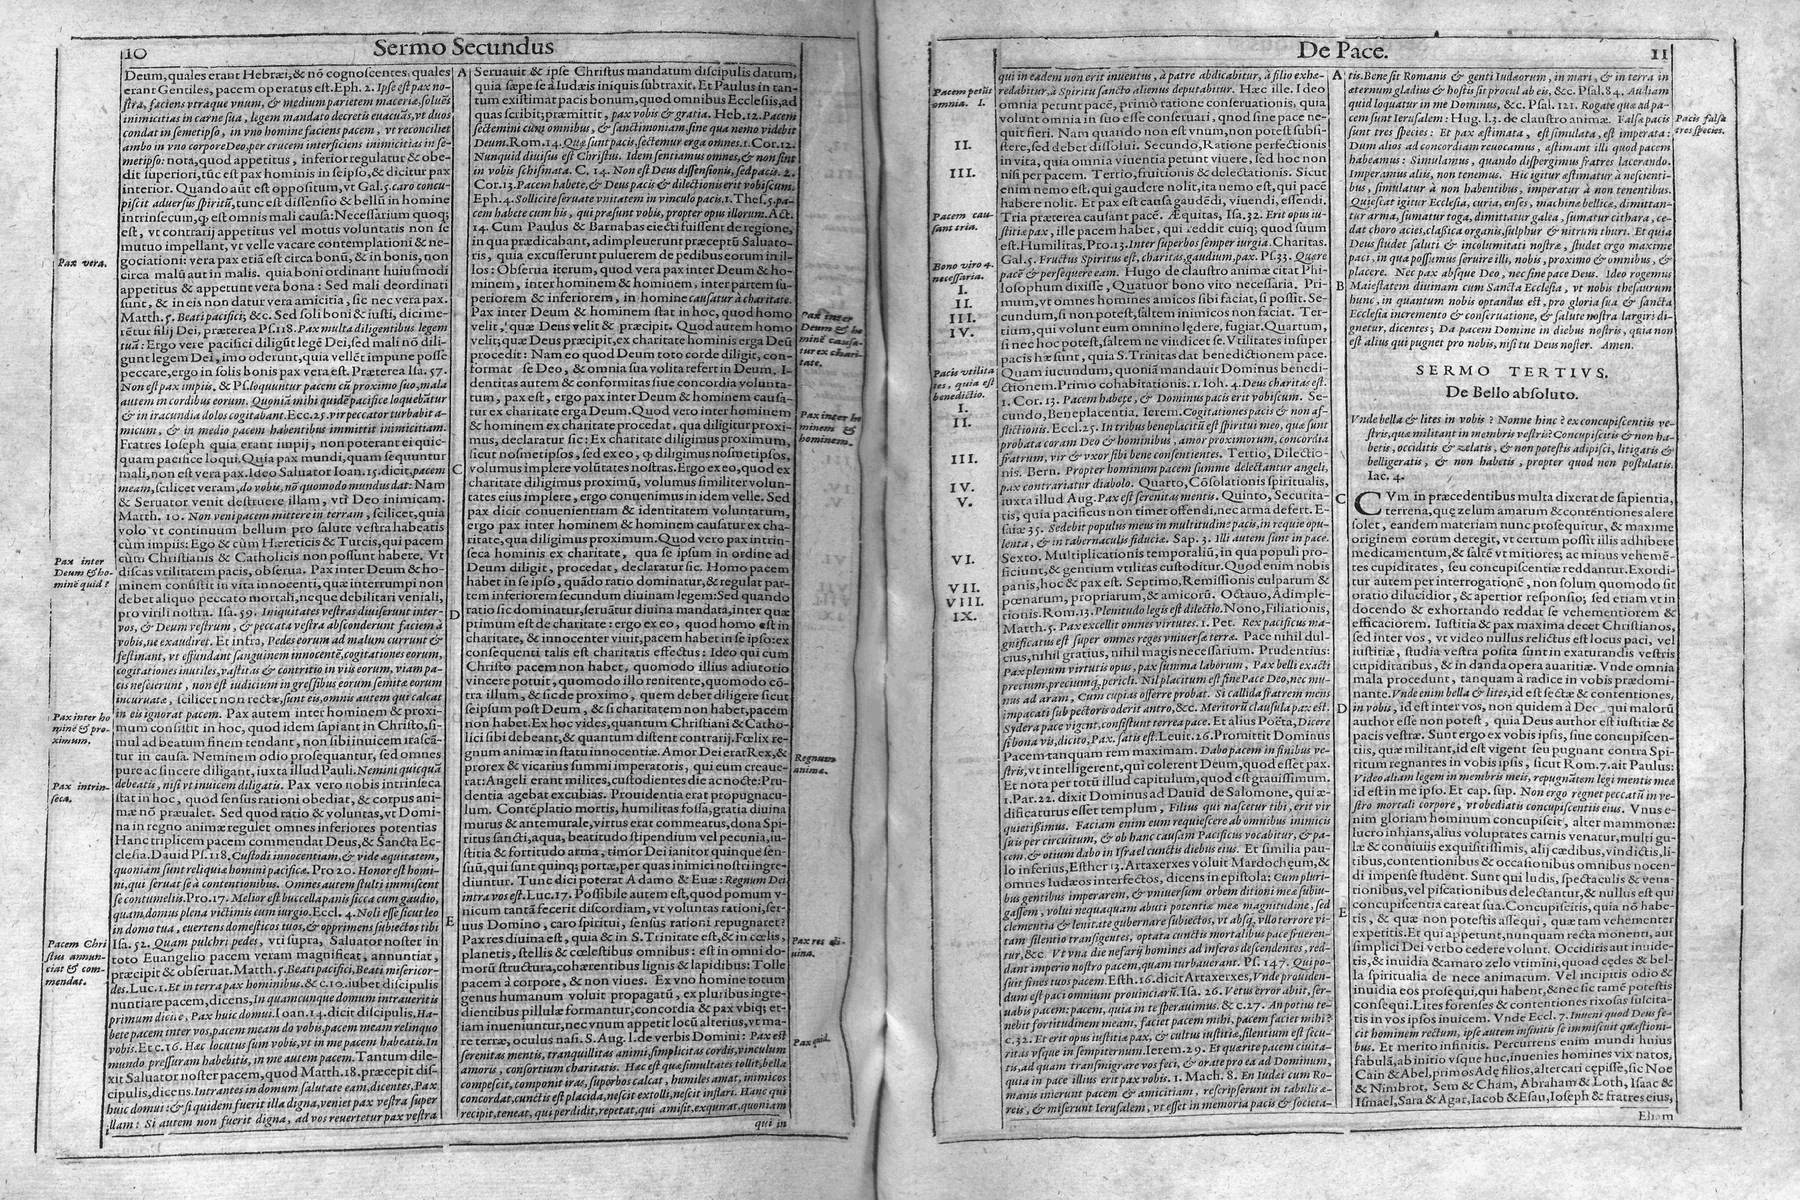 10
Sermo Secundus
Deum, quales erant Hebræi,& nõ cognoscentes, quales
erant Gentiles, pacem operatus est. Eph. 2. Ipse est pax no-
stra, faciens vtraque vnum, & medium parietem maceriæ, soluẽs
inimicitias in carne sua, legem mandato decretis euacuãs, vt duos
condat in semetipso, in vno homine faciens pacem, vt reconciliet
ambo in vno corpore Deo, per crucem interficiens inimicitias in se-
metipso: nota, quod appetitus, inferior regulatur & obe-
dit superiori, tũc est pax hominis in seipso, & dicitur pax
interior. Quando aũt est oppositum, vt Gal. 5. caro concu-
piscit aduersus spiritũ, tunc est dissensio & bellũ in homine
intrinsecum, ꝙ est omnis mali causa: Necessarium quoq;
est, vt contrarij appetitus vel motus voluntatis non se
mutuo impellant, vt velle vacare contemplationi & ne-
gociationi: vera pax etiã est circa bonũ, & in bonis, non
circa malũ aut in malis. quia boni ordinant huiusmodi
appetitus & appetunt vera bona: Sed mali deordinati
sunt, & in eis non datur vera amicitia, sic nec vera pax.
Matth. 5. Beati pacifici; &c. Sed soli boni & iusti, dici me-
rẽtur filij Dei, præterea Ps. 118. Pax multa diligentibus legem
tuã: Ergo vere pacifici diligũt legẽ Dei, sed mali nõ dili-
gunt legem Dei, imo oderunt, quia vellẽt impune posse
peccare, ergo in solis bonis pax vera est. Præterea Isa. 57.
Non est pax impiis, & Ps. loquuntur pacem cũ proximo suo, mala
autem in cordibus eorum. Quoniã mihi quidẽ pacifice loquebãtur
& in iracundia dolos cogitabant. Ecc. 25. vir peccator turbabit a-
micum, & in medio pacem habentibus immittit inimicitiam.
Fratres Ioseph quia erant impij, non poterant ei quic-
quam pacifice loqui. Quia pax mundi, quam sequuntur
mali, non est vera pax. Ideo Saluator Ioan. 15. dicit, pacem
meam, scilicet veram, do vobis, nõ quomodo mundus dat: Nam
& Seruator venit destruere illam, vti Deo inimicam.
Matth. 10. Non veni pacem mittere in terram, scilicet, quia
volo vt continuum bellum pro salute vestra habeatis
cùm impiis: Ego & cùm Hæreticis & Turcis, qui pacem
cum Christianis & Catholicis non possunt habere. Vt
discas vtilitatem pacis, obserua. Pax inter Deum & ho-
minem consistit in vita innocenti, quæ interrumpi non
debet aliquo peccato mortali, neque debilitari veniali,
pro virili nostra. Isa. 59. Iniquitates vestras diuiserunt inter-
vos, & Deum vestrum, & peccata vestra absconderunt faciem à
vobis, ne exaudiret. Et infra, Pedes eorum ad malum currunt &
festinant, vt effundant sanguinem innocentẽ, cogitationes eorum,
cogitationes inutiles, vastitas & contritio in viis eorum, viam pa-
cis nescierunt, non est iudicium in gressibus eorum semitæ eorum
incuruatæ, scilicet non rectæ, sunt eis, omnis autem qui calcat
in eis ignorat pacem. Pax autem inter hominem & proxi-
mum consistit in hoc, quod idem sapiant in Christo, si-
mul ad beatum finem tendant, non sibi inuicem irascã-
tur in causa. Neminem odio prosequantur, sed omnes
pure ac sincere diligant, iuxta illud Pauli. Nemini quicquã
debeatis, nisi vt inuicem diligatis. Pax vero nobis intrinseca
stat in hoc, quod sensus rationi obediat, & corpus ani-
mæ nõ præualet. Sed quod ratio & voluntas, vt Domi-
na in regno animæ regulet omnes inferiores potentias
Hanc triplicem pacem commendat Deus, & Sancta Ec-
clesia. Dauid Ps. 118. Custodi innocentiam, & vide æquitatem,
quoniam sunt reliquiæ homini pacificæ. Pro 20. Honor est homi-
ni, qui seruat se à contentionibus. Omnes autem stulti immiscent
se contumeliis. Pro. 17. Melior est buccella panis sicca cum gaudio,
quam, domus plena victimis cum iurgio. Eccl. 4. Noli esse sicut leo
in domo tua, euertens domesticos tuos, & opprimens subiectos tibi
Isa. 52. Quam pulchri pedes, vti supra, Saluator noster in
toto Euangelio pacem veram magnificat, annuntiat,
præcipit & obseruat. Matth. 5. Beati pacifici, Beati misericor-
des. Luc. 1. Et in terra pax hominibus. & c. 10. iubet discipulis
nuntiare pacem, dicens, In quamcunque domum intraueritis
primum dicite, Pax huic domui. Ioan. 14. dicit discipulis, Ha-
bete pacem inter vos, pacem meam do vobis, pacem meam relinquo
vobis. Et c. 16. Hæc locutus sum vobis, vt in me pacem habeatis. In
mundo pressuram habebitis, in me autem pacem. Tantum dile-
xit Saluator noster pacem, quod Matth. 18. præcepit dis-
cipulis, dicens. Intrantes in domum salutate eam, dicentes, Pax
huic domui: & si quidem fuerit illa digna, veniet pax vestra super
illam: Si autem non fuerit digna, ad vos reuertetur pax vestra
Pax vera.
Pax inter
Deum & ho-
minẽ quid?
Pax inter ho
minẽ & pro-
ximum.
Pax intrin-
seca.
Pacem Chri
stus annun-
ciat & com-
mendat.
A
C
D
E
Seruauit & ipse Christus mandatum discipulis datum,
quia sæpe se à Iudæis iniquis subtraxit. Et Paulus in tan-
tum existimat pacis bonum, quod omnibus Ecclesiis, ad
quas scribit; præmittit, pax vobis & gratia. Heb. 12. Pacem
sectemini cum omnibus, & sanctimoniam, sine qua nemo videbit
Deum. Rom. 14. Quæ sunt pacis, sectemur erga omnes. 1. Cor. 12.
Nunquid diuisus est Christus. Idem sentiamus omnes, & non sint
in vobis schismata. C. 14. Non est Deus dissensionis, sed pacis. 2.
Cor. 13. Pacem habete, & Deus pacis & dilectionis erit vobiscum.
Eph. 4. Sollicite seruate vnitatem in vinculo pacis. 1. Thes. 5. pa-
cem habete cum his, qui præsunt vobis, propter opus illorum. Act.
14. Cum Paulus & Barnabas eiecti fuissent de regione,
in qua prædicabant, adimpleuerunt præceptũ Saluato-
ris, quia excusserunt puluerem de pedibus eorum in il-
los: Obserua iterum, quod vera pax inter Deum & ho-
minem, inter hominem & hominem, inter partem su-
periorem & inferiorem, in homine causatur à charitate.
Pax inter Deum & hominem stat in hoc, quod homo
velit, quæ Deus velit & præcipit. Quod autem homo
velit; quæ Deus præcipit, ex charitate hominis erga Deũ
procedit: Nam eo quod Deum toto corde diligit, con-
format se Deo, & omnia sua volita refert in Deum. I-
dentitas autem & conformitas siue concordia volunta-
tum, pax est, ergo pax inter Deum & hominem causa-
tur ex charitate erga Deum. Quod vero inter hominem
& hominem ex charitate procedat, qua diligitur proxi-
mus, declaratur sic: Ex charitate diligimus proximum,
sicut nosmetipsos, sed ex eo, ꝙ diligimus nosmetipsos,
volumus implere volũtates nostras. Ergo ex eo, quod ex
charitate diligimus proximũ, volumus similiter volun-
tates eius implere, ergo conuenimus in idem velle. Sed
pax dicit conuenientiam & identitatem voluntatum,
ergo pax inter hominem & hominem causatur ex cha-
ritate, qua diligimus proximum. Quod vero pax intrin-
seca hominis ex charitate, qua se ipsum in ordine ad
Deum diligit, procedat, declaratur sic. Homo pacem
habet in se ipso, quãdo ratio dominatur, & regulat par-
tem inferiorem secundum diuinam legem: Sed quando
ratio sic dominatur, seruãtur diuina mandata, inter quæ
primum est de charitate: ergo ex eo, quod homo est in
charitate, & innocenter viuit, pacem habet in se ipso: ex
consequenti talis est charitatis effectus: Ideo qui cum
Christo pacem non habet, quomodo illius adiutorio
vincere potuit, quomodo illo renitente, quomodo cõ-
tra illum, & sic de proximo, quem debet diligere sicut
seipsum post Deum, & si charitatem non habet, pacem
non habet. Ex hoc vides, quantum Christiani & Catho-
lici sibi debeant, & quantum distent contrarij. Fœlix re-
gnum animæ in statu innocentiæ. Amor Dei erat Rex, &
prorex & vicarius summi imperatoris, qui eum creaue-
rat: Angeli erant milites, custodientes die ac nocte: Pru-
dentia agebat excubias. Prouidentia erat propugnacu-
lum. Contẽplatio mortis, humilitas fossa, gratia diuina
murus & antemurale, virtus erat commeatus, dona Spi-
ritus sancti, aqua, beatitudo stipendium vel pecunia, iu-
stitia & fortitudo arma, timor Dei ianitor quinque sen-
suũ, qui sunt quinq; portæ, per quas inimici nostri ingre-
diuntur. Tunc dici poterat Adamo & Euæ: Regnum Dei
intra vos est. Luc. 17. Possibile autem est, quod pomum v-
nicum tantã fecerit discordiam, vt voluntas rationi, ser-
uus Domino, caro spiritui, sensus rationi repugnaret?
Pax res diuina est, quia & in S. Trinitate est, & in cœlis,
planetis, stellis & cœlestibus omnibus: est in omni do-
morũ structura, cohærentibus lignis & lapidibus: Tolle
pacem à corpore, & non viues. Ex vno homine totum
genus humanum voluit propagatũ, ex pluribus ingre-
dientibus pillulæ formantur, concordia & pax vbiq; et-
iam inueniuntur, nec vnum appetit locũ alterius, vt ma-
re terræ, oculus nasi. S. Aug. l. de verbis Domini: Pax est
serenitas mentis, tranquillitas animi, simplicitas cordis, vinculum
amoris, consortium charitatis. Hæc est quæ simultates tollit, bella
compescit, componit iras, superbos calcat, humiles amat, inimicos
concordat, cunctis est placida, nescit extolli, nescit inflari. Hanc qui
recipit, teneat, qui perdidit, repetat, qui amisit, exquirat, quoniam
qui in
Pax inter
Deum & ho
minẽ causa-
tur ex chari-
tate.
Pax inter ho
minem &
hominem.
Regnum
animæ.
Pax res di-
uina.
Pax quid.
De Pace.
11
Pacem petũt
omnia. I.
II.
III.
Pacem cau-
sant tria.
Bono viro 4.
necessaria.
I.
II.
III.
IV.
Pacis vtilita
tes, quia est
benedictio.
I.
II.
III.
IV.
V.
VI.
VII.
VIII.
IX.
qui in eadem non erit inuentus, à patre abdicabitur, à filio exhæ-
redabitur, à Spiritu sancto alienus deputabitur. Hæc ille. Ideo
omnia petunt pacẽ, primò ratione conseruationis, quia
volunt omnia in suo esse conseruari, qnod sine pace ne-
quit fieri. Nam quando non est vnum, non potest subsi-
stere, sed debet dissolui. Secundo, Ratione perfectionis
in vita, quia omnia viuentia petunt viuere, sed hoc non
nisi per pacem. Tertio, fruitionis & delectationis. Sicut
enim nemo est, qui gaudere nolit, ita nemo est, qui pacẽ
habere nolit. Et pax est causa gaudẽdi, viuendi, essendi.
Tria præterea causant pacẽ. Æquitas, Isa. 32. Erit opus iu-
stitiæ pax, ille pacem habet, qui reddit cuiq; quod suum
est. Humilitas, Pro. 13. Inter superbos semper iurgia. Charitas.
Gal. 5. Fructus Spiritus est, charitas, gaudium, pax. Ps. 33. Quære
pacẽ & persequere eam. Hugo de claustro animæ citat Phi-
losophum dixisse, Quatuor bono viro necessaria. Pri-
mum, vt omnes homines amicos sibi faciat, si possit. Se-
cundum, si non potest, saltem inimicos non faciat. Ter-
tium, qui volunt eum omnino lędere, fugiat. Quartum,
si nec hoc potest, saltem ne vindicet se. Vtilitates insuper
pacis hæ sunt, quia S. Trinitas dat benedictionem pace.
Quam iucundum, quoniã mandauit Dominus benedi-
ctionem. Primo cohabitationis. 1. Ioh. 4. Deus charitas est.
1. Cor. 13. Pacem habete, & Dominus pacis erit vobiscum. Se-
cundo, Beneplacentia, Ierem. Cogitationes pacis & non af-
flictionis. Eccl. 25. In tribus beneplacitũ est spiritui meo, quæ sunt
probata coram Deo & hominibus, amor proximorum, concordia
fratrum, vir & vxor sibi bene consentientes. Tertio, Dilectio-
nis. Bern. Propter hominum pacem summe delectantur angeli,
pax contrariatur diabolo. Quarto, Cõsolationis spiritualis,
iuxta illud Aug. Pax est serenitas mentis. Quinto, Securita-
tis, quia pacificus non timet offendi, nec arma defert. E-
saiæ 35. Sedebit populus meus in multitudine pacis, in requie opu-
lenta, & in tabernaculis fiduciæ. Sap. 3. Illi autem sunt in pace.
Sexto. Multiplicationis temporaliũ, in qua populi pro-
ficiunt, & gentium vtilitas custoditur. Quod enim nobis
panis, hoc & pax est. Septimo, Remissionis culparum &
pœnarum, propriarum, & amicorũ. Octauo, Adimple-
tionis. Rom. 13. Plenitudo legis est dilectio. Nono, Filiationis,
Matth. 5. Pax excellit omnes virtutes. 1. Pet. Rex pacificus ma-
gnificatus est super omnes reges vniuersæ terræ. Pace nihil dul-
cius, nihil gratius, nihil magis necessarium. Prudentius:
Pax plenum virtutis opus, pax summa laborum, Pax belli exacti
precium, preciumq; pericli. Nil placitum est sine Pace Deo, nec mu-
nus ad aram, Cum cupias offerre probat. Si callida fratrem mens
impacati sub pectoris oderit antro, &c. Meritorũ clausula pax est.
Sydera pace vigent, consistunt terrea pace. Et alius Poëta, Dicere
si bona vis, dicito, Pax. satis est. Leuit. 26. Promittit Dominus
Pacem tanquam rem maximam. Dabo pacem in finibus ve-
stris, vt intelligerent, qui colerent Deum, quod esset pax.
Et nota per totũ illud capitulum, quod est grauissimum.
1. Par. 22. dixit Dominus ad Dauid de Salomone, qui æ-
dificaturus esset templum, Filius qui nascetur tibi, erit vir
quietissimus. Faciam enim eum requiescere ab omnibus inimicis
suis per circuitum, & ob hanc causam Pacificus vocabitur, & pa-
cem, & otium dabo in Israel cunctis diebus eius. Et similia pau-
lo inferius, Esther 13. Artaxerxes voluit Mardocheum, &
omnes Iudæos interfectos, dicens in epistola: Cum pluri-
bus gentibus imperarem, & vniuersum orbem ditioni meæ subiu-
gassem, volui nequaquam abuti potentiæ meæ magnitudine, sed
clementia & lenitate gubernare subiectos, vt absq; vllo terrore vi-
tam silentio transigentes, optata cunctis mortalibus pace frueren-
tur, &c. Vt vna die nefarij homines ad inferos descendentes, red-
dant imperio nostro pacem, quam turbauerant. Ps. 147. Qui po-
suit fines tuos pacem. Esth. 16. dicit Artaxerxes, Vnde prouiden-
dum est paci omnium prouinciarũ. Isa. 26. Vetus error abiit, ser-
uabis pacem: pacem, quia in te sperauimus. & c. 27. An potius te-
nebit fortitudinem meam, faciet pacem mihi, pacem faciet mihi?
c. 32. Et erit opus iustitiæ pax, & cultus iustitiæ, silentium est secu-
ritas vsque in sempiternum. Ierem. 29. Et quærite pacem ciuita-
tis, ad quam transmigrare vos feci, & orate pro ea ad Dominum,
quia in pace illius erit pax vobis. 1. Mach. 8. En Iudæi cum Ro-
manis inierunt pacem & amicitiam, rescripserunt in tabulis æ-
reis, & miserunt Ierusalem, vt esset in memoria pacis & societa-
A
B
C
D
E
tis. Bene sit Romanis & genti Iudæorum, in mari, & in terra in
æternum gladius & hostis sit procul ab eis, &c. Psal. 84. Audiam
quid loquatur in me Dominus, &c. Psal. 121. Rogate quæ ad pa-
cem sunt Ierusalem: Hug. l. 3. de claustro animæ. Falsæ pacis
sunt tres species: Et pax æstimata, est simulata, est imperata:
Dum alios ad concordiam reuocamus, æstimant illi quod pacem
habeamus: Simulamus, quando dispergimus fratres lacerando.
Imperamus aliis, non tenemus. Hic igitur æstimatur à nescienti-
bus, simulatur à non habentibus, imperatur à non tenentibus.
Quiescat igitur Ecclesia, curia, enses, machinæ bellicæ, dimittan-
tur arma, sumatur toga, dimittatur galea, sumatur cithara, ce-
dat choro acies, classica organis, sulphur & nitrum thuri. Et quia
Deus studet saluti & incolumitati nostræ, studet ergo maxime
paci, in qua possumus seruire illi, nobis, proximo & omnibus, &
placere. Nec pax absque Deo, nec sine pace Deus. Ideo rogemus
Maiestatem diuinam cum Sancta Ecclesia, vt nobis thesaurum
hunc, in quantum nobis optandus est, pro gloria sua & sancta
Ecclesiæ incremento & conseruatione, & salute nostra largiri di-
gnetur, dicentes; Da pacem Domine in diebus nostris, quia non
est alius qui pugnet pro nobis, nisi tu Deus noster. Amen.
SERMO TERTIVS.
De Bello absoluto.
Vnde bella & lites in vobis? Nonne hinc? ex concupiscentiis ve-
stris, quæ militant in membris vestris? Concupiscitis & non ha-
betis, occiditis & zelatis, & non potestis adipisci, litigatis &
belligeratis, & non habetis, propter quod non postulatis.
Iac. 4.
CVm in præcedentibus multa dixerat de sapientia,
terrena, quę zelum amarum & contentiones alere
solet, eandem materiam nunc prosequitur, & maxime
originem eorum detegit, vt certum possit illis adhibere
medicamentum, & salutẽ vt mitiores; ac minus vehemẽ-
tes cupiditates, seu concupiscentiæ reddantur. Exordi-
tur autem per interrogationẽ, non solum quomodo sit
oratio dilucidior, & apertior responsio; sed etiam vt in
docendo & exhortando reddat se vehementiorem &
efficaciorem. Iustitia & pax maxima decet Christianos,
sed inter vos, vt video nullus relictus est locus paci, vel
iustitiæ, studia vestra posita sunt in exaturandis vestris
cupiditatibus, & in danda opera auaritiæ. Vnde omnia
mala procedunt, tanquam à radice in vobis prædomi-
nante. Vnde enim bella & lites, id est sectæ & contentiones,
in vobis, id est inter vos, non quidem à Deo qui malorũ
author esse non potest, quia Deus author est iustitiæ &
pacis vestræ. Sunt ergo ex vobis ipsis, siue concupiscen-
tiis, quæ militant, id est vigent seu pugnant contra Spi-
ritum regnantes in vobis ipsis, sicut Rom. 7. ait Paulus:
Video aliam legem in membris meis, repugnãtem legi mentis meæ
id est in me ipso. Et cap. sup. Non ergo regnet peccatũ in ve-
stro mortali corpore, vt obediatis concupiscentiis eius. Vnus e-
nim gloriam hominum concupiscit, alter mammonæ:
lucro inhians, alius voluptates carnis venatur, multi gu-
læ & conuiuiis exquisitissimis, alij cædibus, vindictis, li-
tibus, contentionibus & occasionibus omnibus nocen-
di impense student. Sunt qui ludis, spectaculis & vena-
tionibus, vel piscationibus delectantur, & nullus est qui
concupiscentia careat sua. Concupiscitis, quia nõ habe-
tis, & quæ non potestis assequi, quæ tam vehementer
expetitis. Et qui appetunt, nunquam recta monenti, aut
simplici Dei verbo cedere volunt. Occiditis aut inuide-
tis, & inuidia & amaro zelo vtimini, quoad cędes & bel-
la spiritualia de nece animarum. Vel incipitis odio &
inuidia eos prosequi, qui habent, & nec sic tamẽ potestis
consequi. Lites forenses & contentiones rixosas suscita-
tis in vos ipsos inuicem. Vnde Eccl. 7. Inueni quod Deus fe-
cit hominem rectum, ipse autem infinitis se immiscuit quæstioni-
bus. Et merito infinitis. Percurrens enim mundi huius
fabulã, ab initio vsque huc, inuenies homines vix natos,
Cain & Abel, primos Adę filios, altercari cępisse, sic Noe
& Nimbrot, Sem & Cham, Abraham & Loth, Isaac &
Ismael, Sara & Agar, Iacob & Esau, Ioseph & fratres eius,
Eliam
Pacis falsæ
tres species.